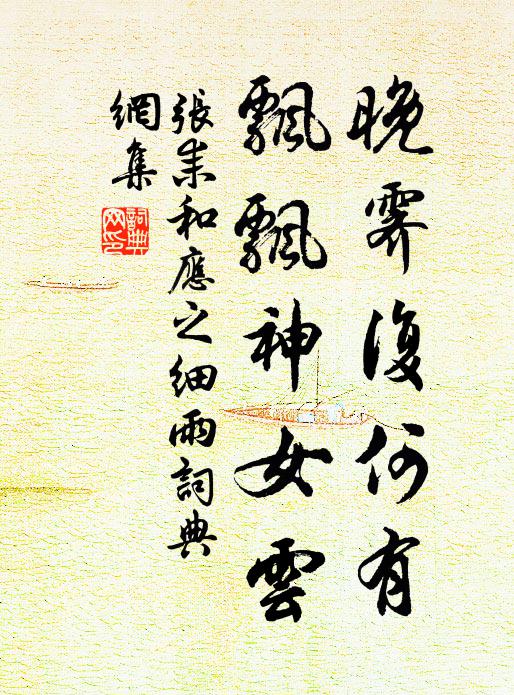 晚霽復何有
飄飄神女雲
張耒和應之細雨詞典
網集
詞典
网印